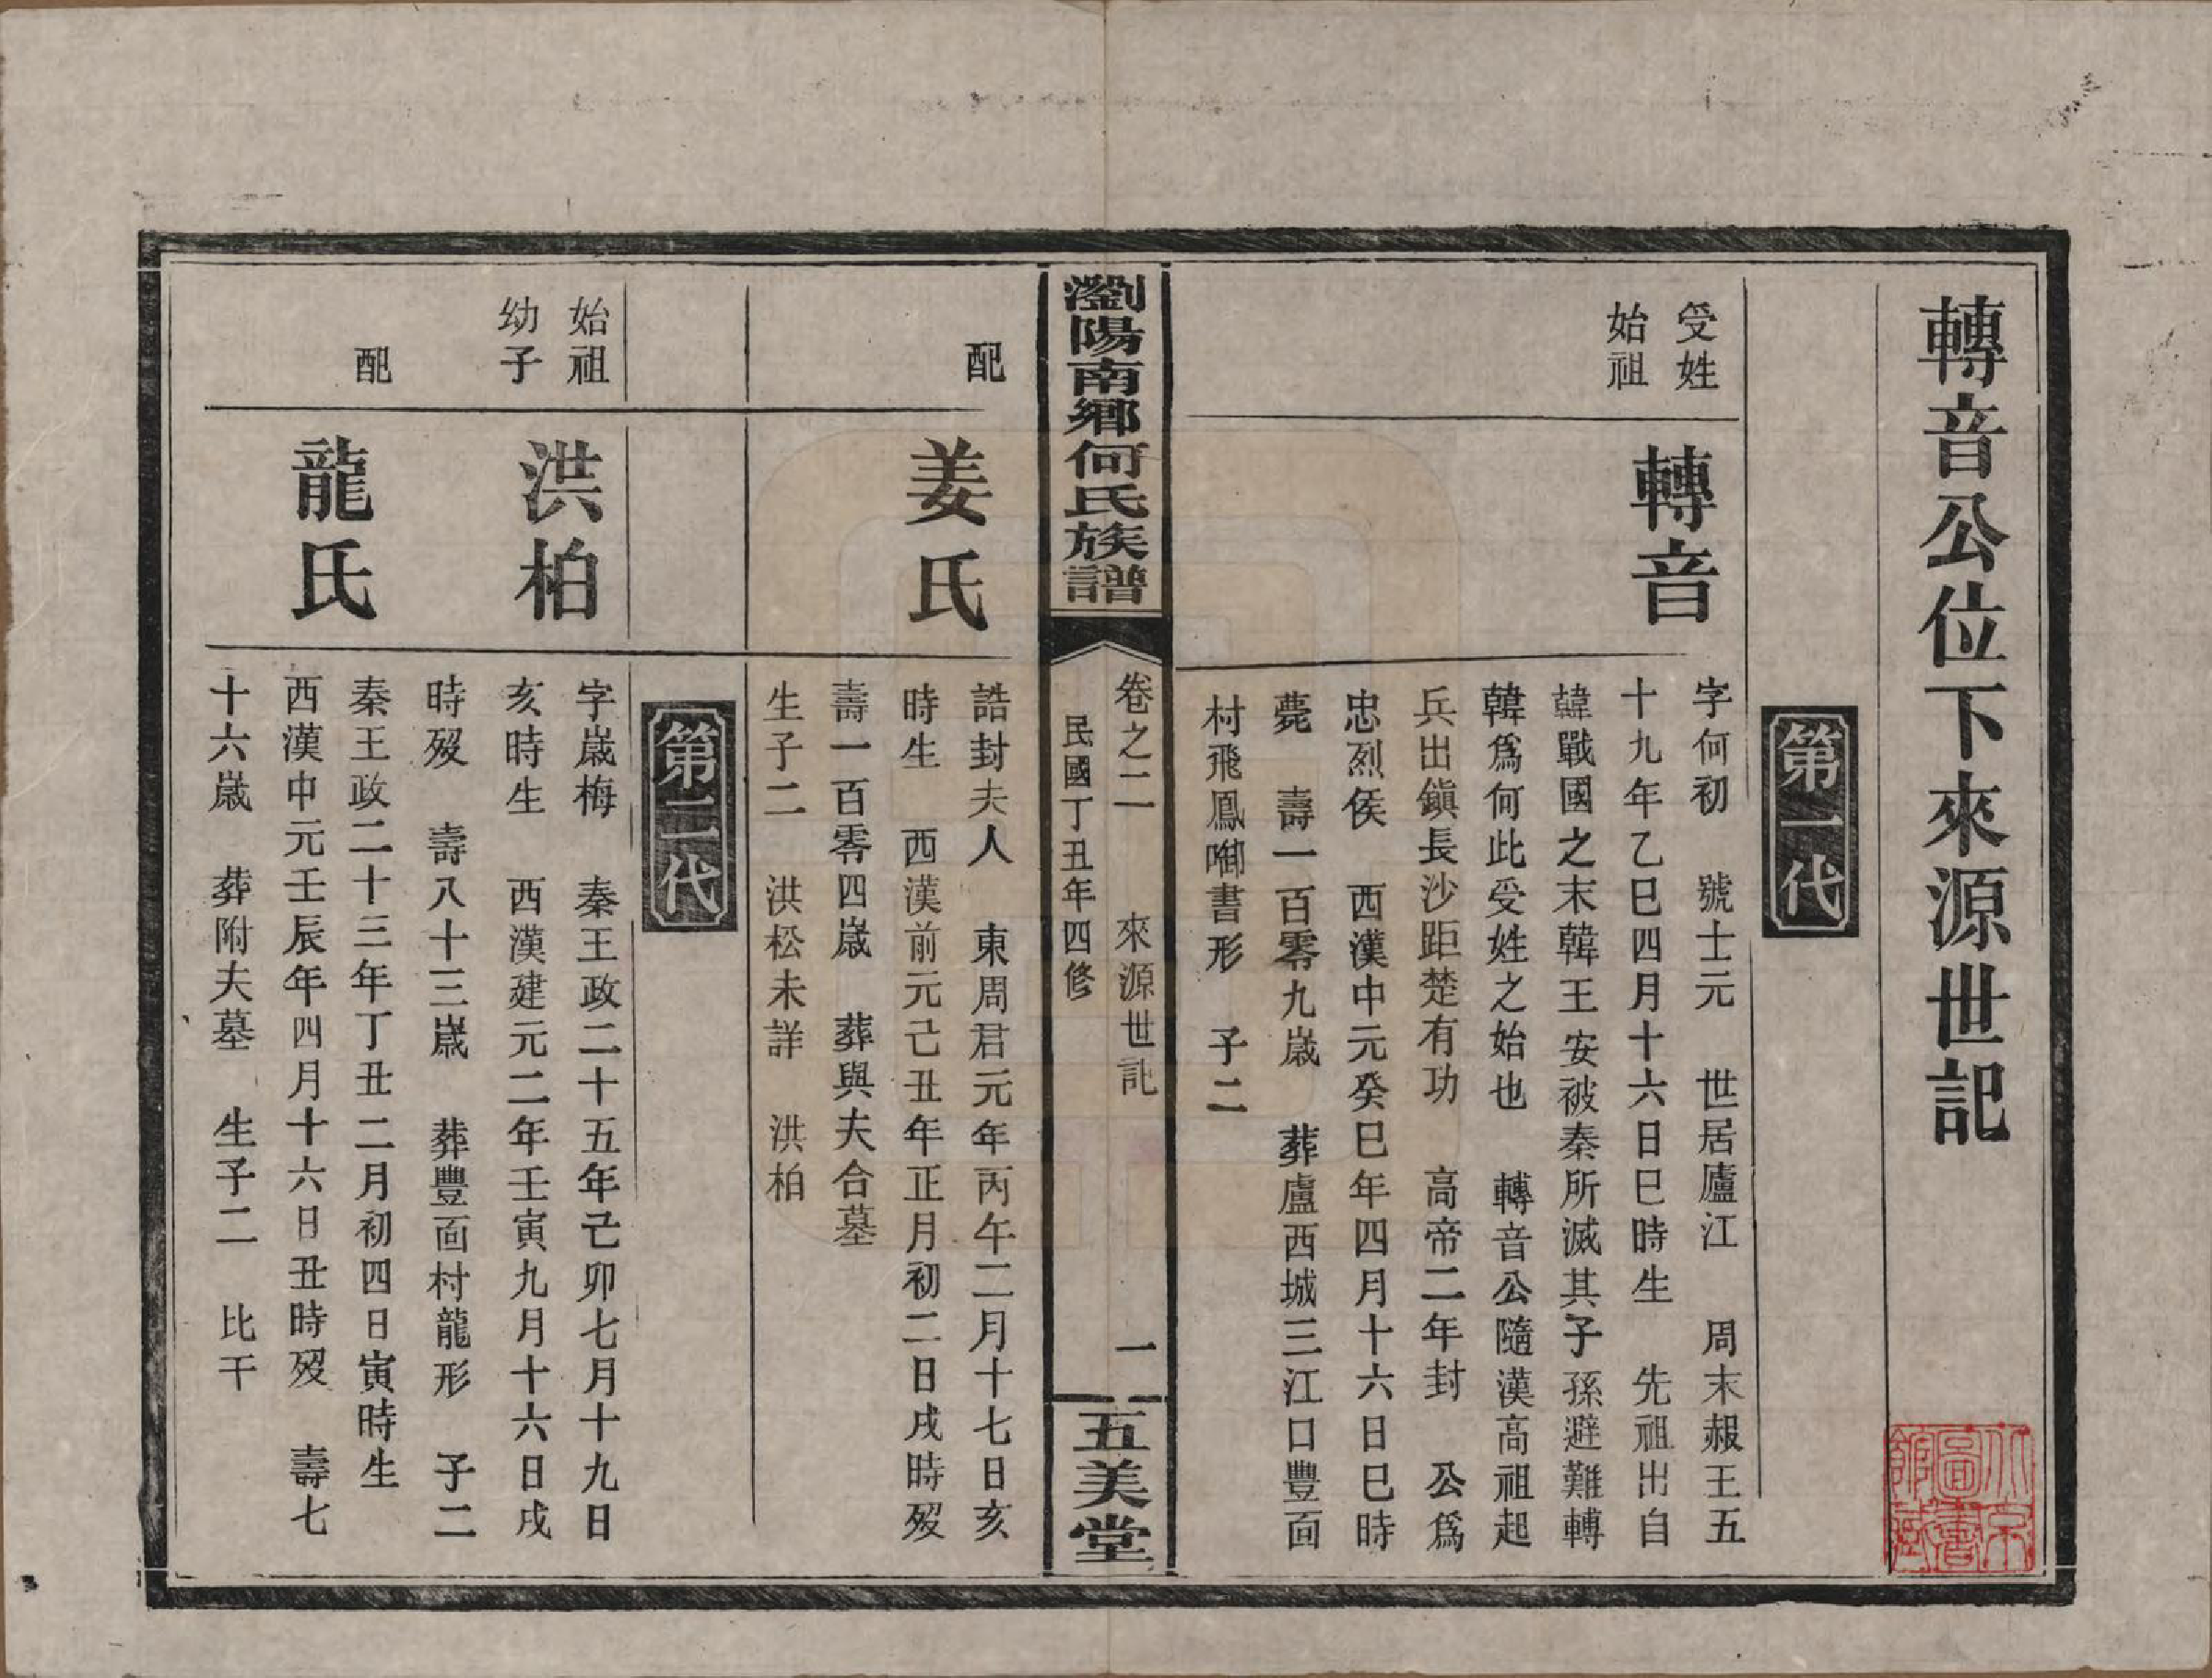 轉音公位下來源世記
北京圖書館藏
第一代
受姓
始祖
轉音
字何初　號士元　世居廬江　周末赧王五
十九年乙巳四月十六日巳時生　先祖出自
韓戰國之末韓王安被秦所滅其子孫避難轉
韓爲何此受姓之始也　轉音公隨漢高祖起
兵出鎭長沙距楚有功　高帝二年封　公爲
忠烈侯　西漢中元癸巳年四月十六日巳時
薨　壽一百零九歲　葬盧西城三江口豐面
村飛鳳啣書形　子二
瀏陽南鄉何氏族譜
卷之二　來源世記　一
民國丁丑年四修
五美堂
配
姜氏
誥封夫人　東周君元年丙午二月十七日亥
時生　西漢前元己丑年正月初二日戌時歿
壽一百零四歲　葬與夫合墓
生子二　洪松未詳　洪柏
第二代
始祖
幼子
洪柏
字歲梅　秦王政二十五年己卯七月十九日
亥時生　西漢建元二年壬寅九月十六日戌
時歿　壽八十三歲　葬豐面村龍形　子二
配
龍氏
秦王政二十三年丁丑二月初四日寅時生
西漢中元壬辰年四月十六日丑時歿　壽七
十六歲　葬附夫墓　生子二　比干